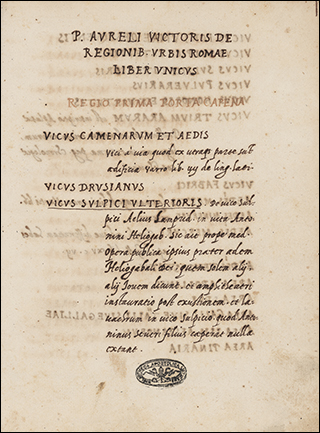 P. AVRELI VICTORIS DE
REGIONIB. VRBIS ROMAE
LIBER VNICVS
REGIO PRIMA PORTA CAPENA
VICVS CAMENARVM ET AEDIS
Vici a via quod ex utraq; parte sunt
aedificia varro lib. iiij de ling. lati
VICVS DRVSIANVS
VICVS SVLPICI VLTERIORIS. De vico sul
pici Aelius Lamprid. in vita Anto
nini Heliogab. sic ait
opera publica ipsius praeter aedem
Heliogabali Dei quem Solem alij
alij Iovem dicunt et amphiteatri
instauratio post exustionem et la
vacrum in vico sulpicio quod Anto
ninus severi filius ceperat nulla
extant.